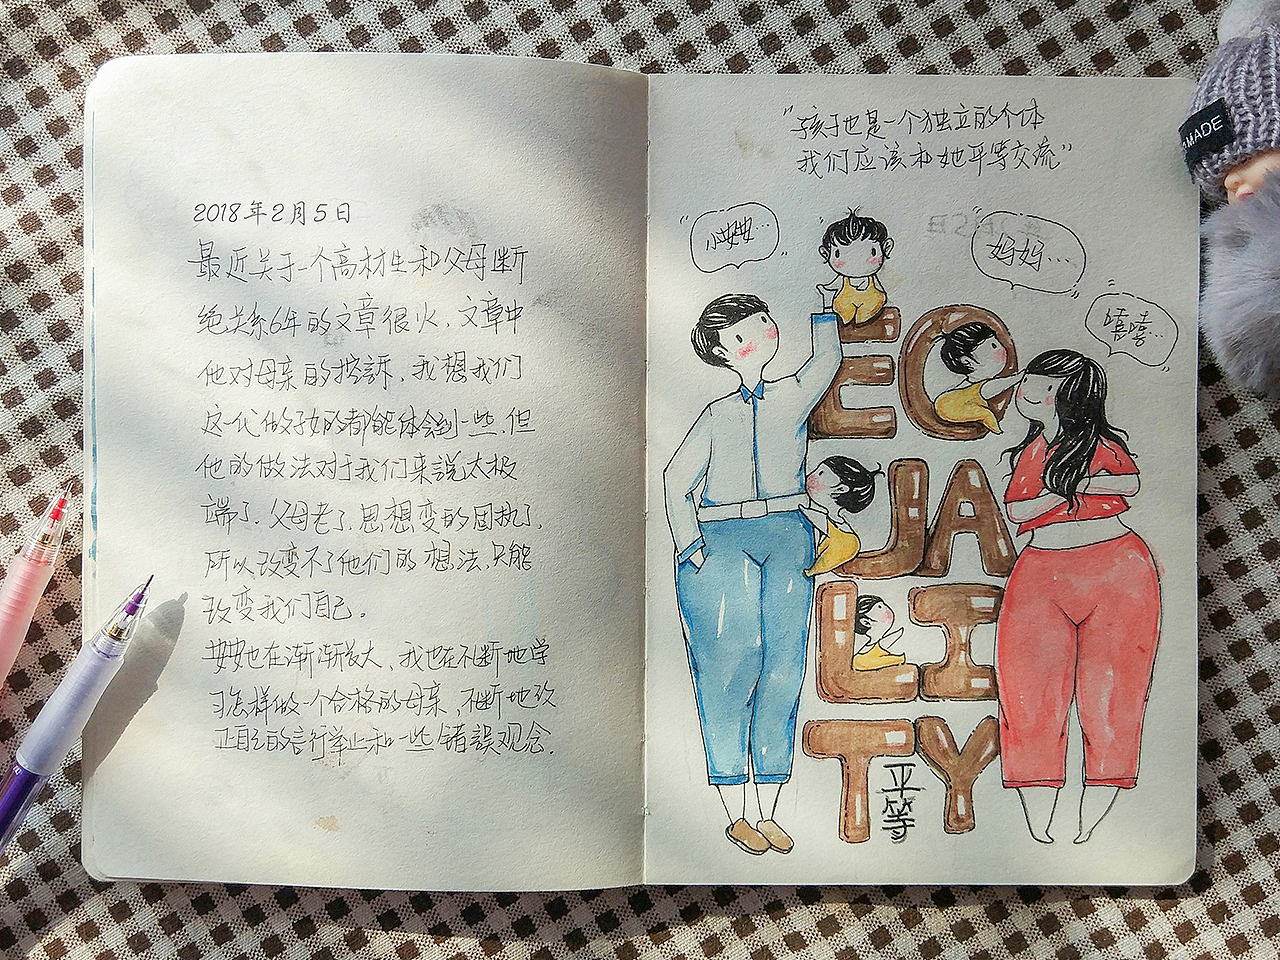 2018年2月5日
最近关于一个高材生和父母断
绝关系6年的文章很火，文章中
他对母亲的控訴，我想我们
这一代做子女的都能体会到一些，但
他的做法对于我们来说太极
端了，父母老了，思想变的固执了，
所以改变不了他们的想法，只能
改变我们自己。
也在渐渐长大，我也在不断地学
习怎样做一个合格的母亲，不断地改
正自己的言行举止和一些错誤观念。
“孩子也是一个独立的个体
我们应该和她平等交流”
小
妈妈…
嘻嘻…
EQ
UA
LI
TY
平等
MADE